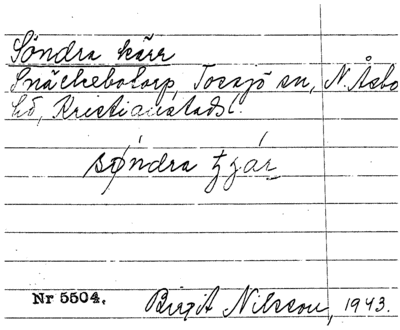 Söndra kärr
Snäckebotorp, Tossjö sn, N. Åsbo
hd, Kristianstads l.
søndra
Nr 5504. Birgit Nilsson, 1943.